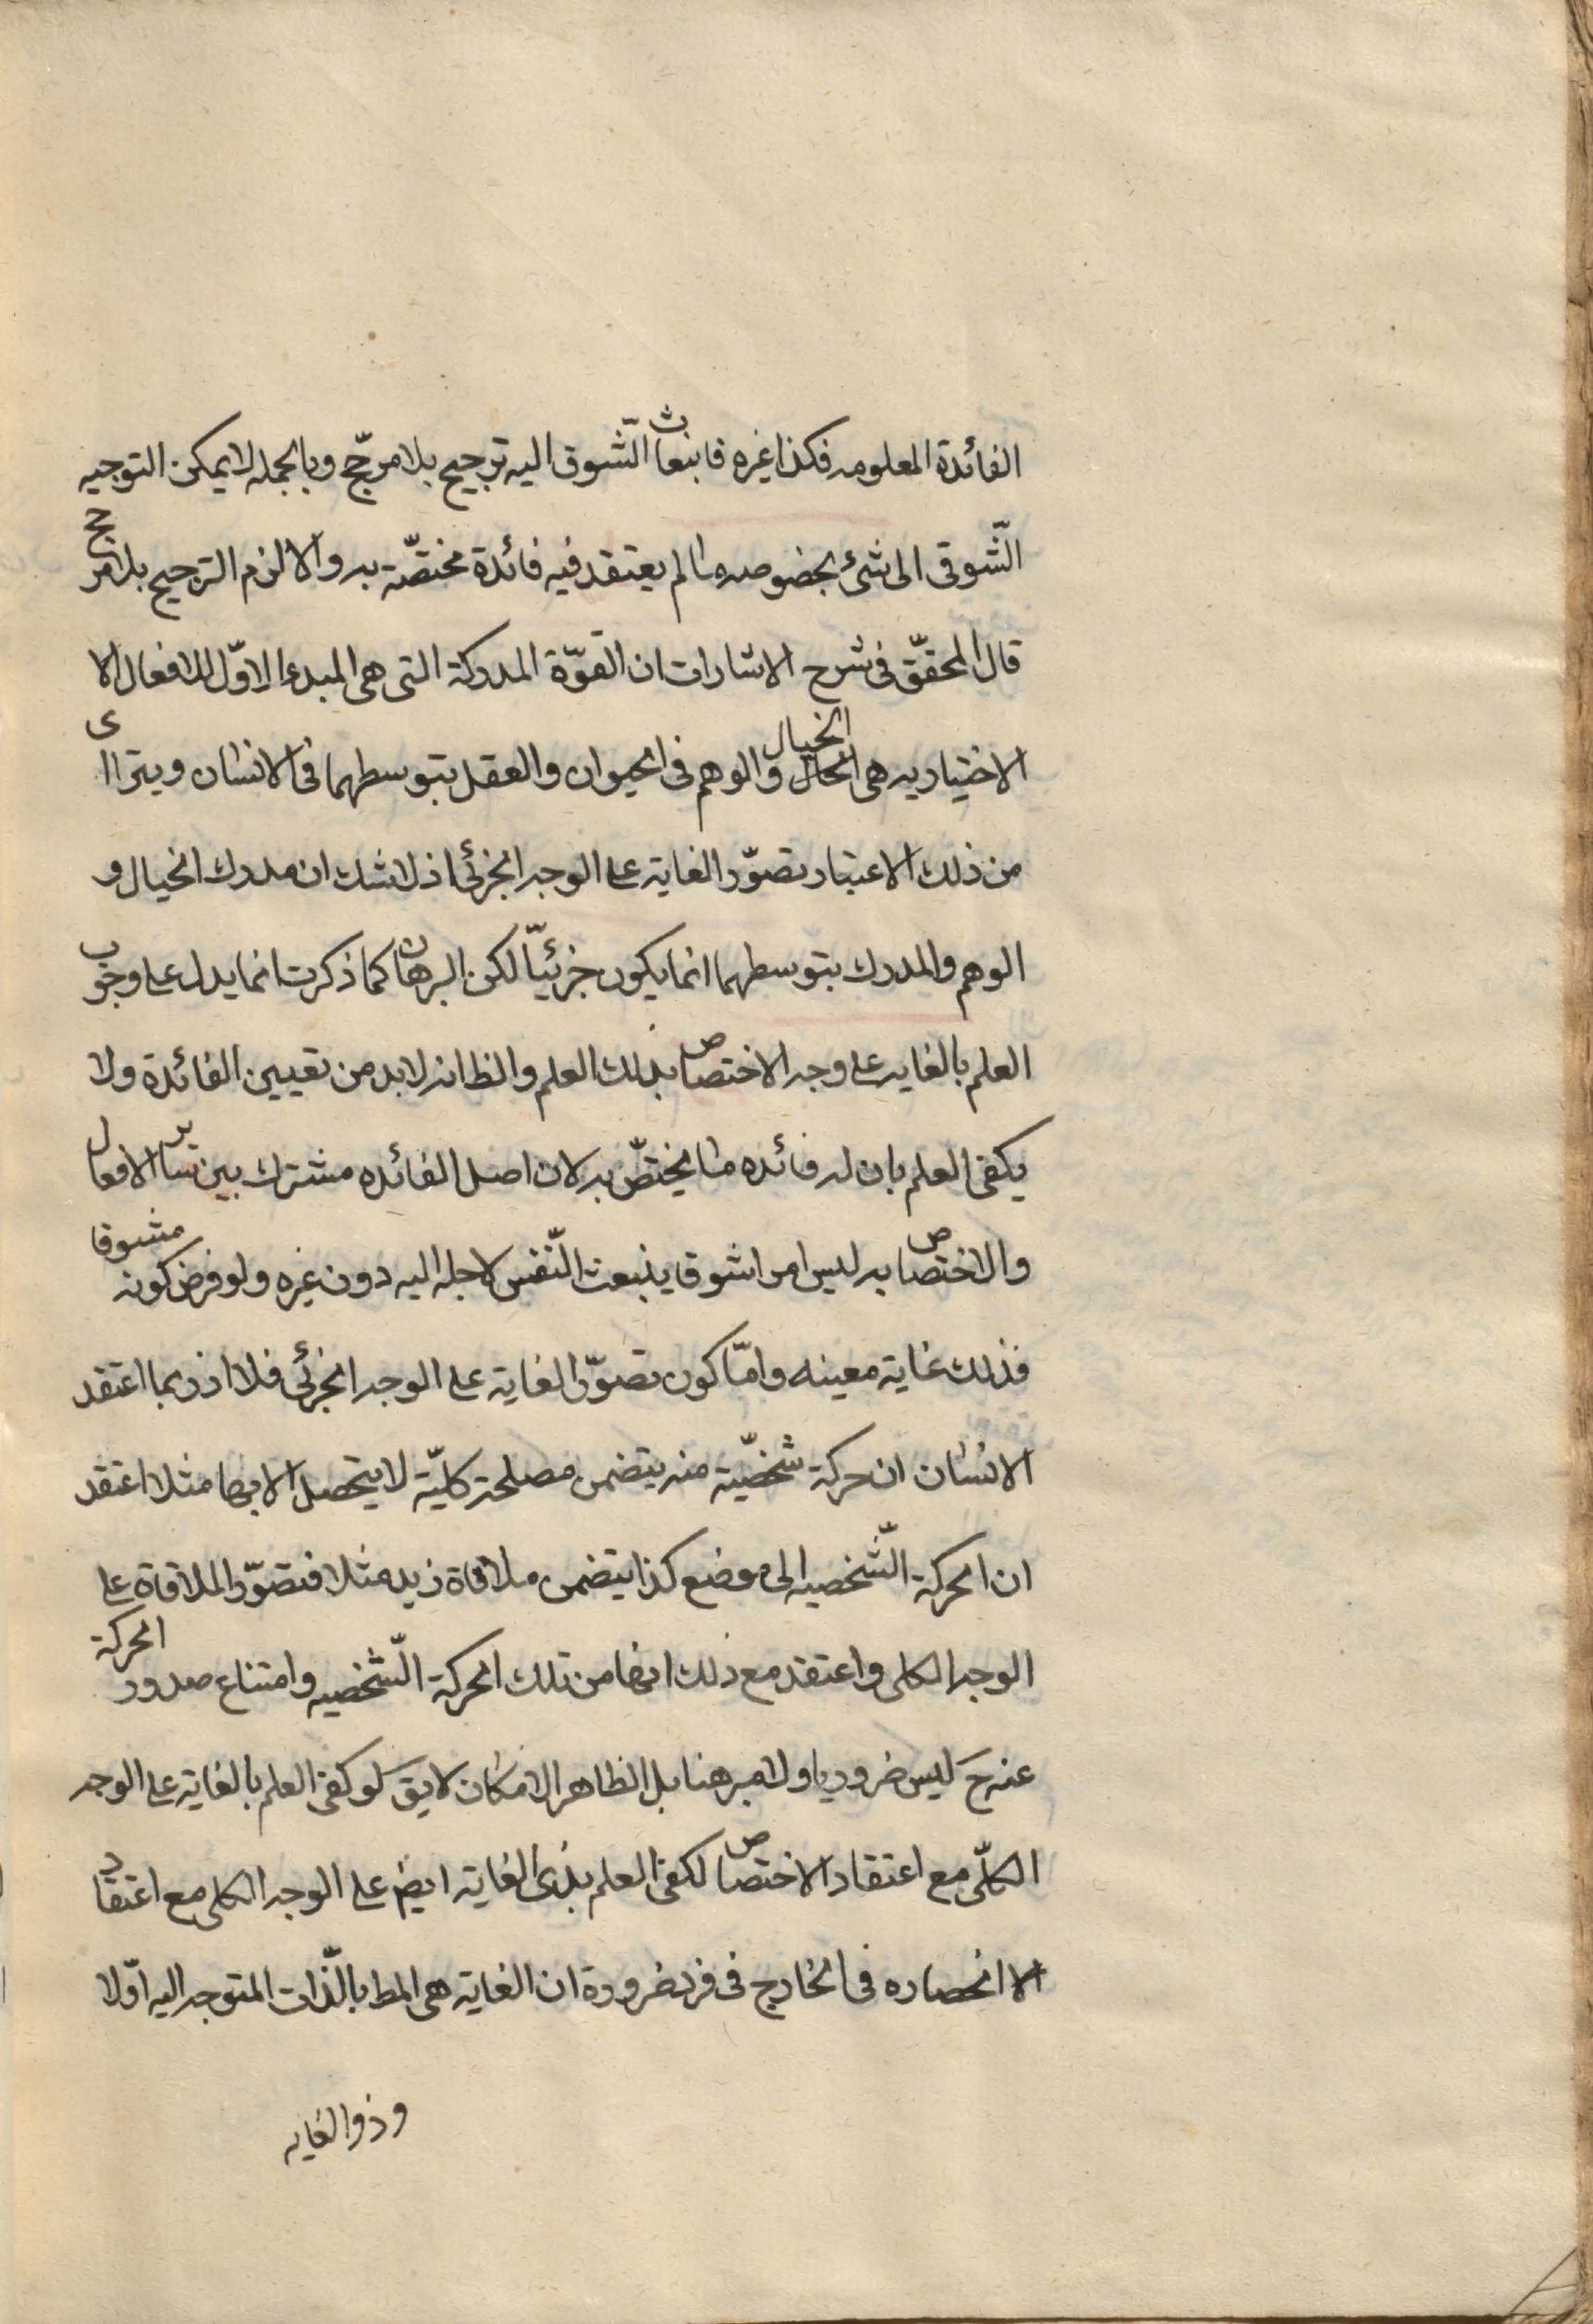 الفائدة المعلومه فكذا غيره فانبعاث الشّوق اليه ترجيح بلا مرجّح وبالجمله لا يمكن التوجيه
الشّوقى الى شئ بخصوصه ما لم يعتقد فيه فائدة مختصّة به والا لزم الترجيح بلا مرجح
قال المحقّق فى شرح الاشارات ان القوّة المدركة التى هى المبدء الاوّل للافعال الا
الاختياريه هى الخيال والوهم فى الحيوان والعقل بتوسطهما فى الانسان ويتراای
من ذلك الاعتبار تصوّر الغاية على الوجه الجزئى اذ لا شك ان مدرك الخيال و
الوهم والمدرك بتوسطهما انما يكون جزئيّا لكن البرهان كما ذكرت انما يدل على وجوب
العلم بالغايه على وجه الاختصاص بذلك العلم والظ انه لا بد من تعيين الفائدة ولا
يكفى العلم بان له فائده ما يختصّ به لان اصل الفائده مشترك بين ساير الافعال
والاختصاص به ليس امرا شوق ينبعث النّفس لاجله اليه دون غيره ولو فرض كونه مشوقا
فذلك غاية معينه وامّا كون تصوّر الغاية على الوجه الجزئى فلا اذ ربما اعتقد
الانسان ان حركة شخصّية منه يتضمن مصلحة كليّة لا يتحصل الا بها مثلا اعتقد
ان الحركة الشّخصيه الى موضع كذا يتضمن ملاقاة زيد مثلا فتصوّر الملاقاة على
الوجه الكلى واعتقد مع ذلك انها من تلك الحركة الشّخصيه وامتناع صدور الحركة
عنه ح ليس ضروريا ولا مبرهنا بل الظاهر الامكان لا يق لو كفى العلم بالغاية على الوجه
الكلّى مع اعتقاد الاختصاص لكفى العلم بذى الغاية ايضا على الوجه الكلى مع اعتقاد
الا انحصاره فى الخارج فى فرد ضرورة ان الغاية هى المط بالذّات المتوجه اليه اوّلا
وذو الغايه